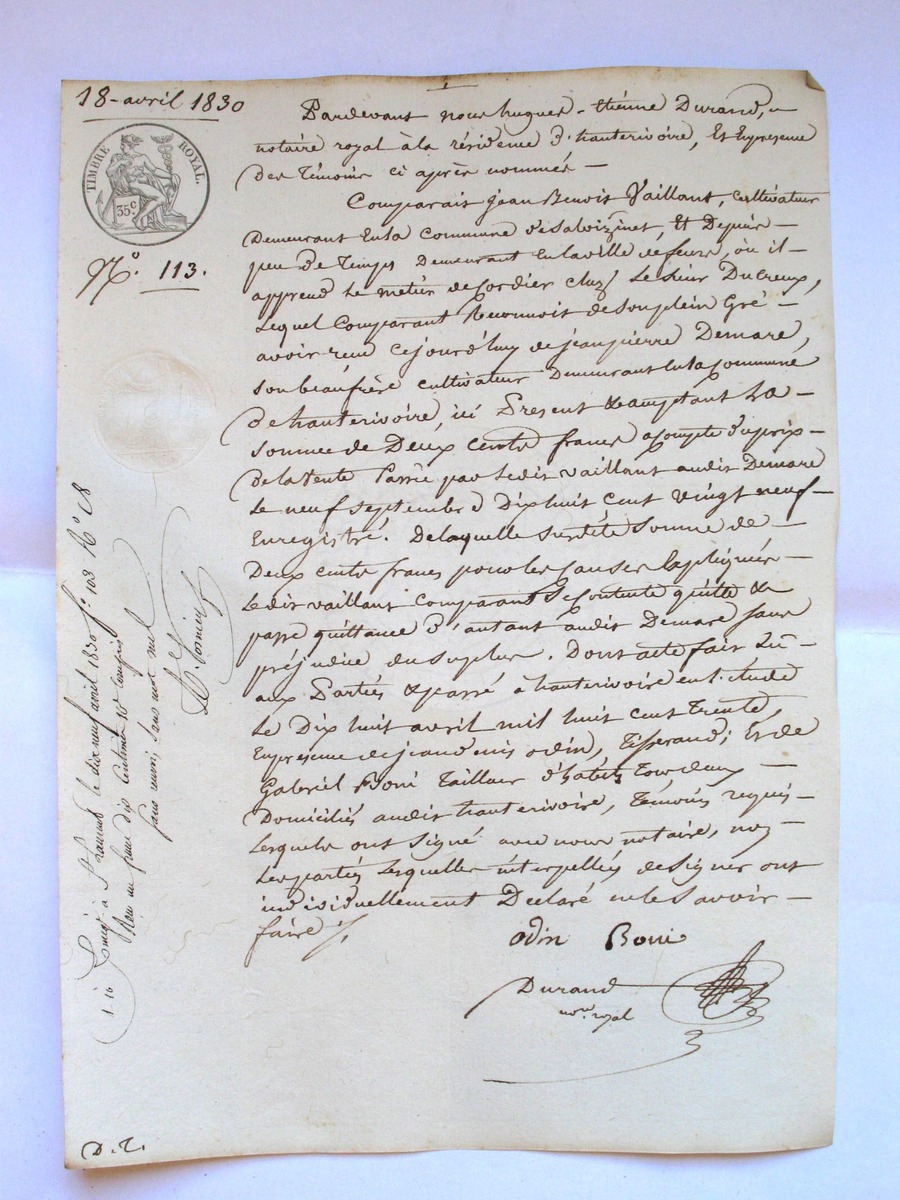 18 - avril 1830
TIMBRE ROYAL.
35 c
N.o 113.
Pardevant nous hugues - thiénne Durand, -
notaire royal à la résidence d'hauterivoire, Et En presence
Des Témoins ci après nommés -
Comparait jean Benoit Vaillant, cultivateur
Demeurant En la Commune de Salvizinet, Et Depuis -
peu de Temps Demeurant En la ville de feurs, où il -
apprend Le metier de Cordier chez Le Sieur Ducreux,
Lequel Comparant Reconnoit de Son plein Gré -
avoir recu Cejourd'huy de jean pierre Demare,
Son beaufrère cultivateur Demeurant En la Commune
De hauterivoire, ici Present & acceptant La -
Somme de Deux Cents francs acompte du prix -
De la Vente Passée par Ledit Vaillant audit Demare
Le neuf Septembre Dix huit Cent Vingt neuf -
Enregistré. De laquelle Susdite Somme de -
Deux Cents francs pour les Causes Expliquées -
Ledit Vaillant Comparant Se Contente quitte &
passe quittance d'autant audit Demare Sans
préjudice du Surplus. Dont acte fait Lû -
aux Parties & passé à hauterivoire en l'étude
Le Dix huit avril mil huit Cent Trente,
En presence de jean denis odin, Tisserand; Et de
Gabriel Boni Tailleur d'habits Tous deux -
Domiciliés audit hauterivoire, Témoins requis -
Lesquels ont Signé avec nous notaire, non
Les parties Lesquelles interpellées de Signer ont
individuellement Déclaré ne le Savoir -
faire /.
odin Boni
Durand
no.re royal
Enreg.é à St Laurent le dix neuf avril 1830 f.o 103 R.o C 8
Reçu un franc dix centimes 10.e compris
sans renvoi ni mot nul
1 - 10
D. T.